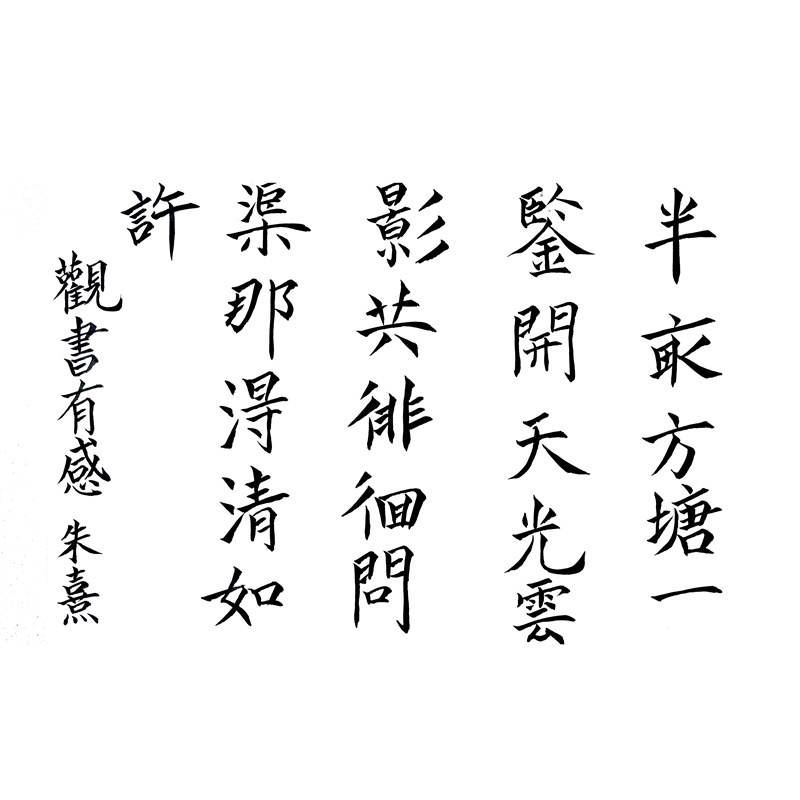 半畝方塘一
鑒開天光雲
影共徘徊問
渠那得清如
許
觀書有感 朱熹